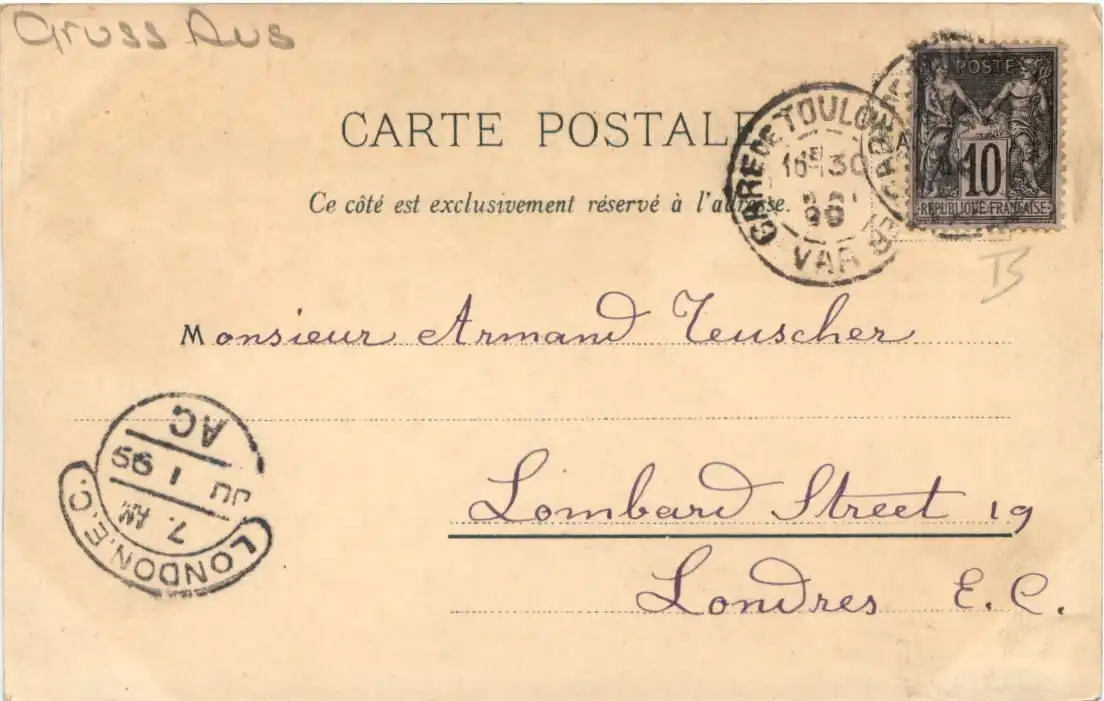 Gruss Aus
POSTE
10
REPUBLIQUE FRANÇAISE
CARTE POSTALE
Ce côté est exclusivement réservé à l'adresse.
GARE DE TOULON
16E 30
VAR
TB
Monsieur Armand Teuscher
Lombard Street 19
Londres E.C.
AC
JU 1 99
7. AM
LONDON.E.C.